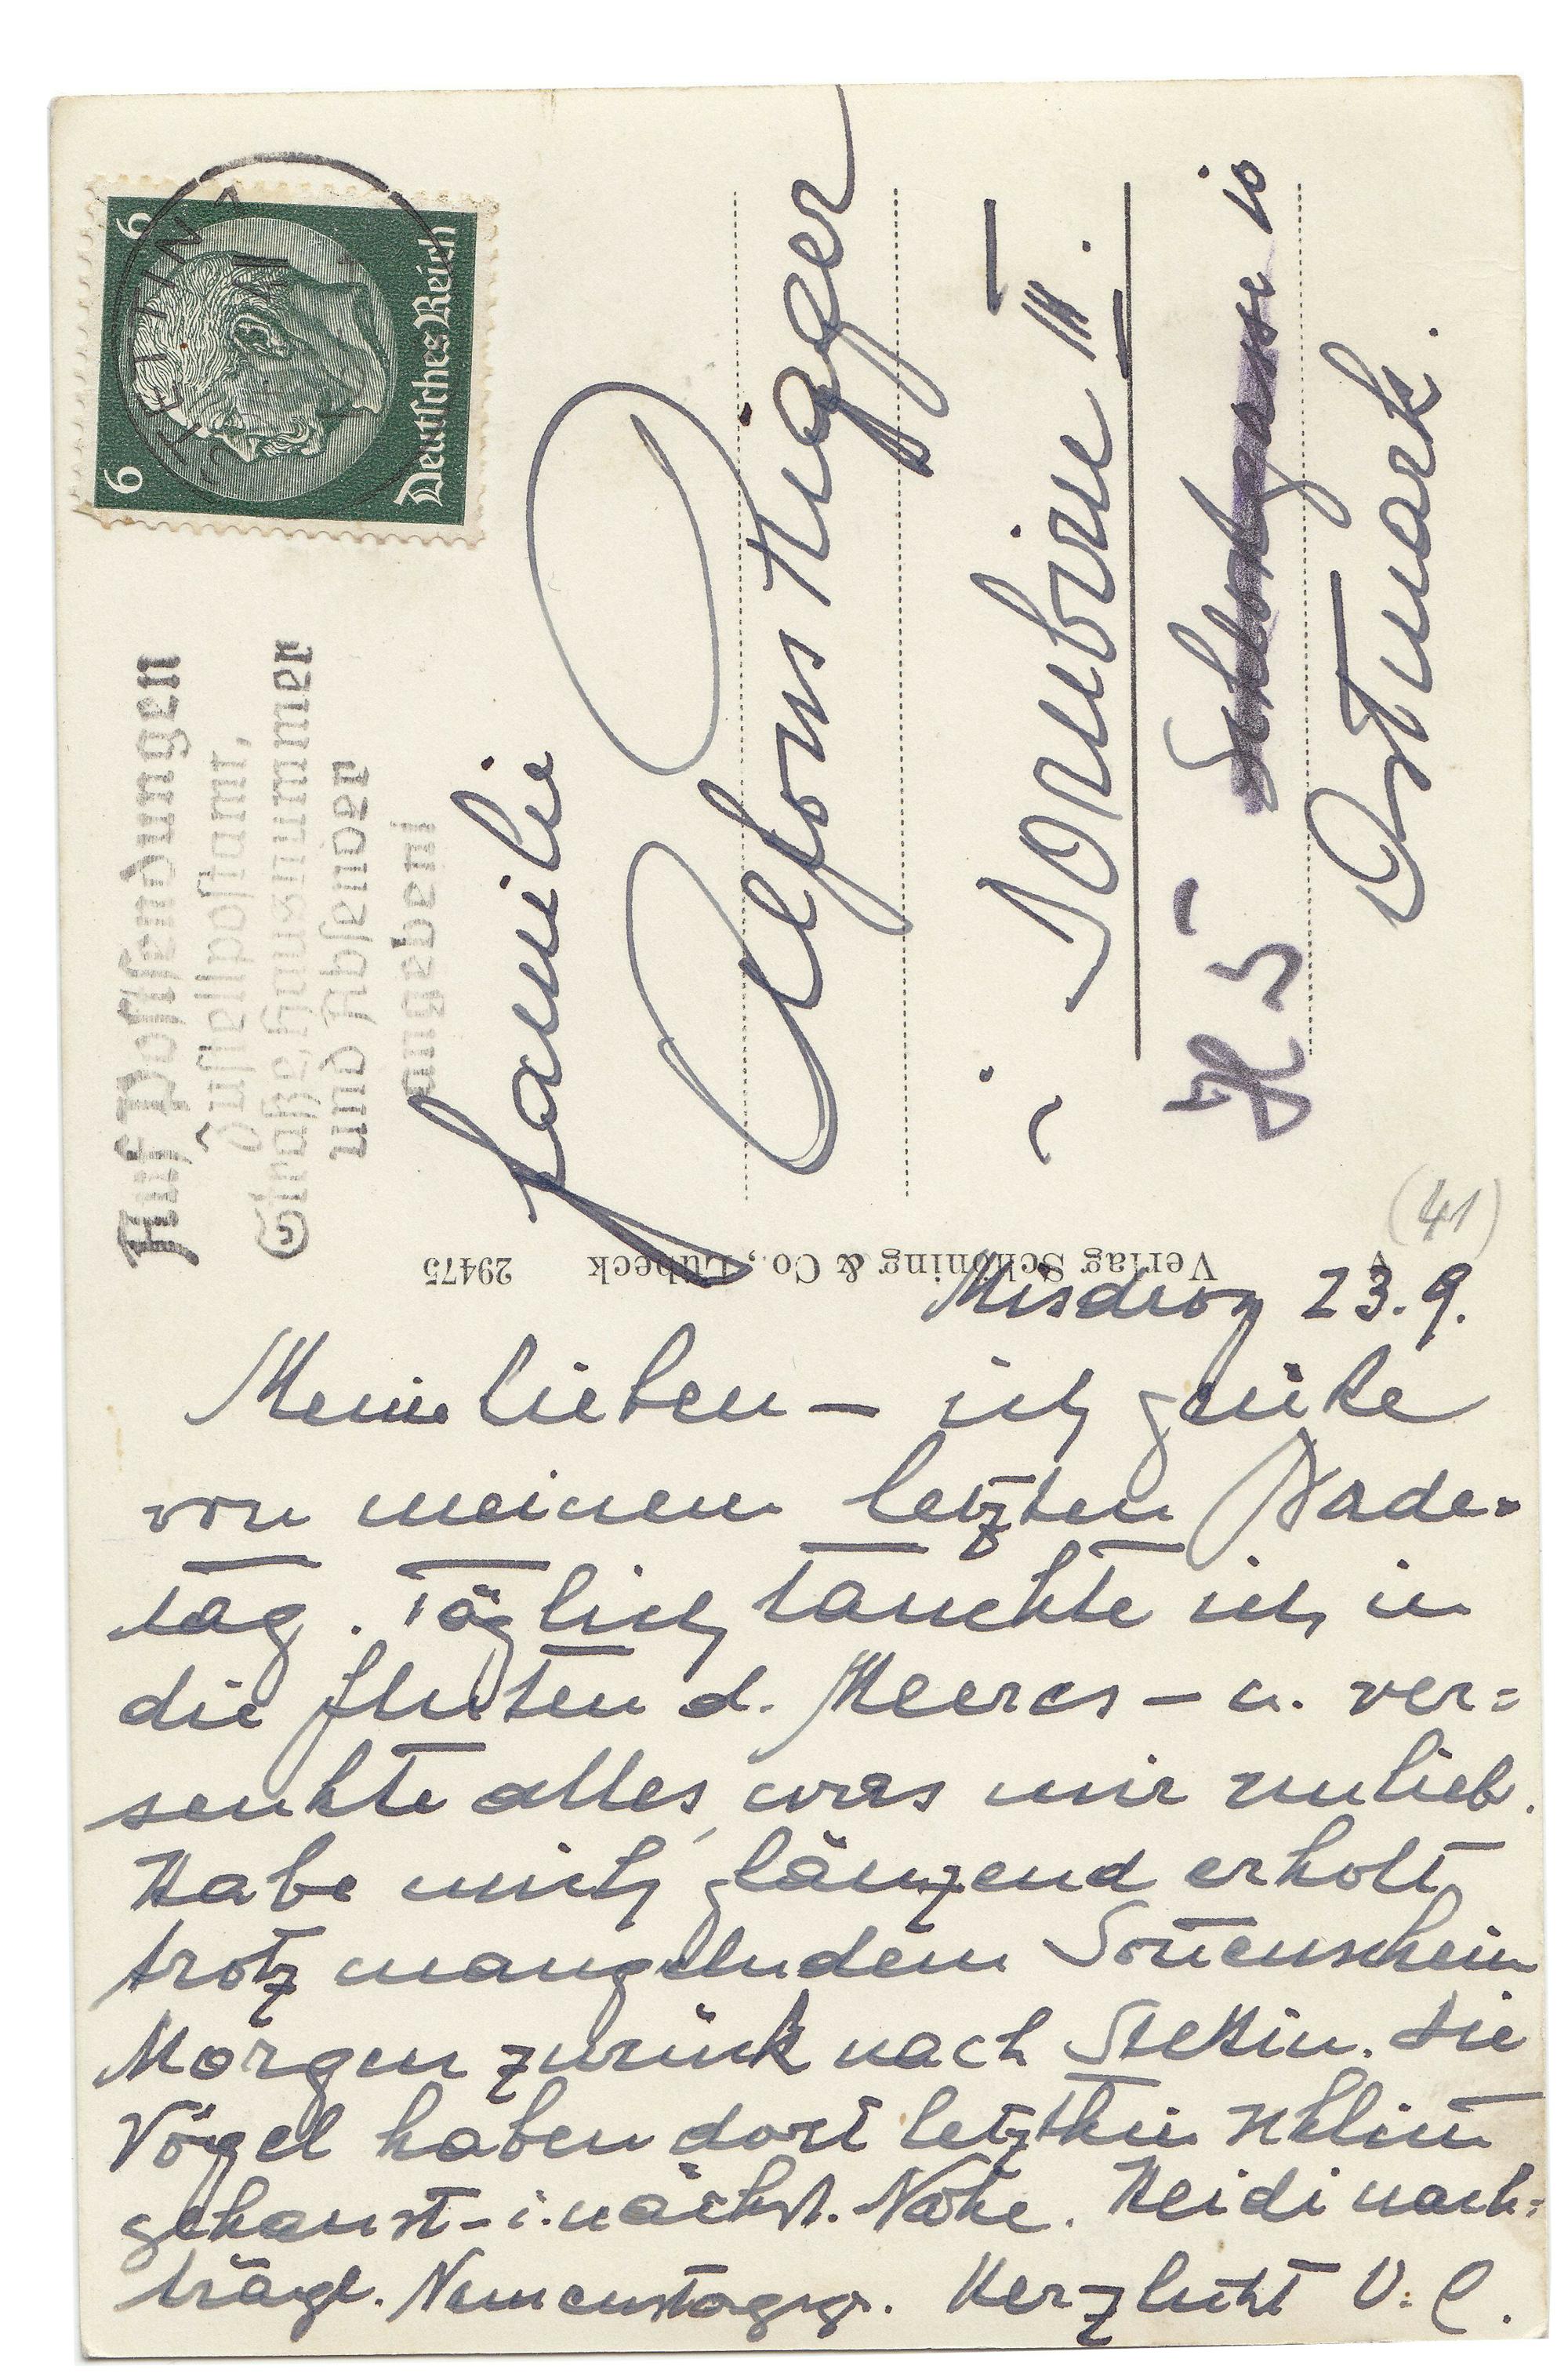 6 6
Deutsches Reich
STETTIN 1
Auf Postsendungen
Zustellpostamt,
Straße Hausnummer
und Absender
angeben!
Familie
Alfons Rüger
i. Dornbirn III.
Schlossgasse 10
H 5
Ostmark.
Verlag Schöning & Co., Lübeck 29475
(41)
Misdroy 23.9.
Meine Lieben – ich grüße
von meinem letzten Bade-
tag. Täglich tauchte ich in
die Fluten d. Meeres – u. ver=
senkte alles, was mir unlieb.
Habe mich glänzend erholt
trotz mangelndem Sonnenschein
Morgen zurück nach Stettin. Die
Vögel haben dort letzthin schlimm
gehaust – i. nächst. Nähe. Heidi nach=
trägl. Namenstagsgr. Herzlichst U. C.